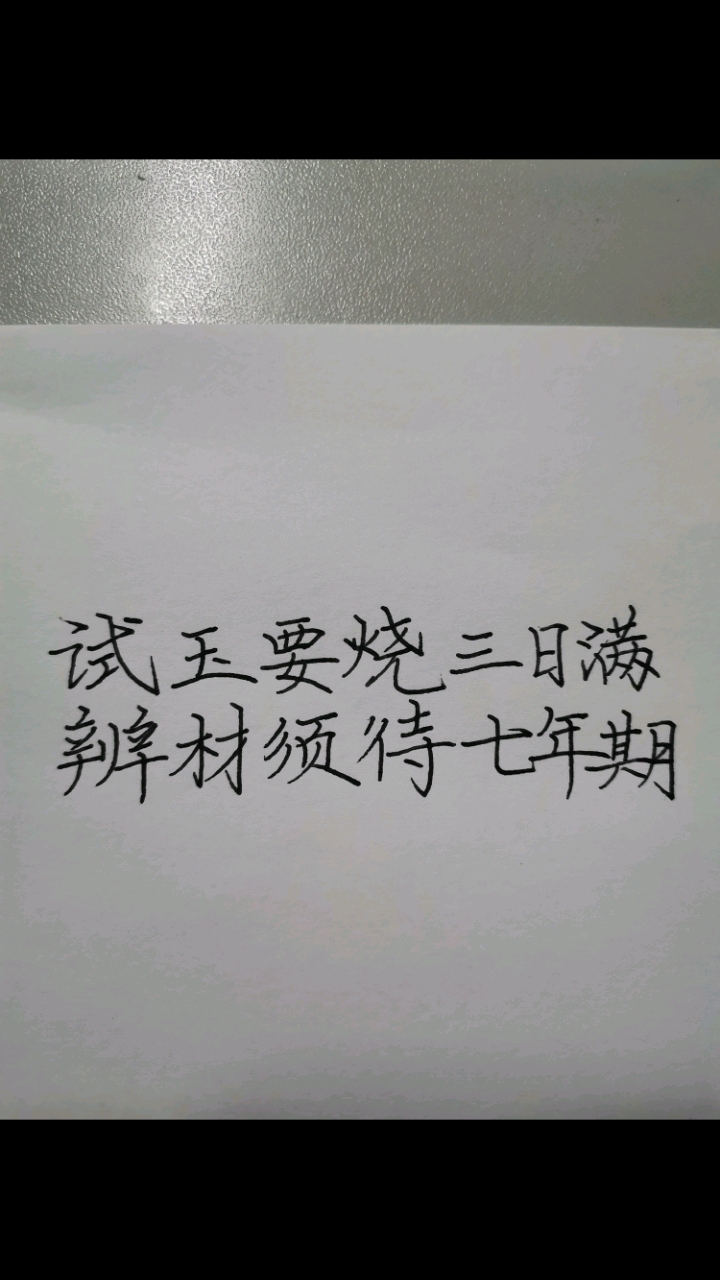 试玉要烧三日满
辨材须待七年期